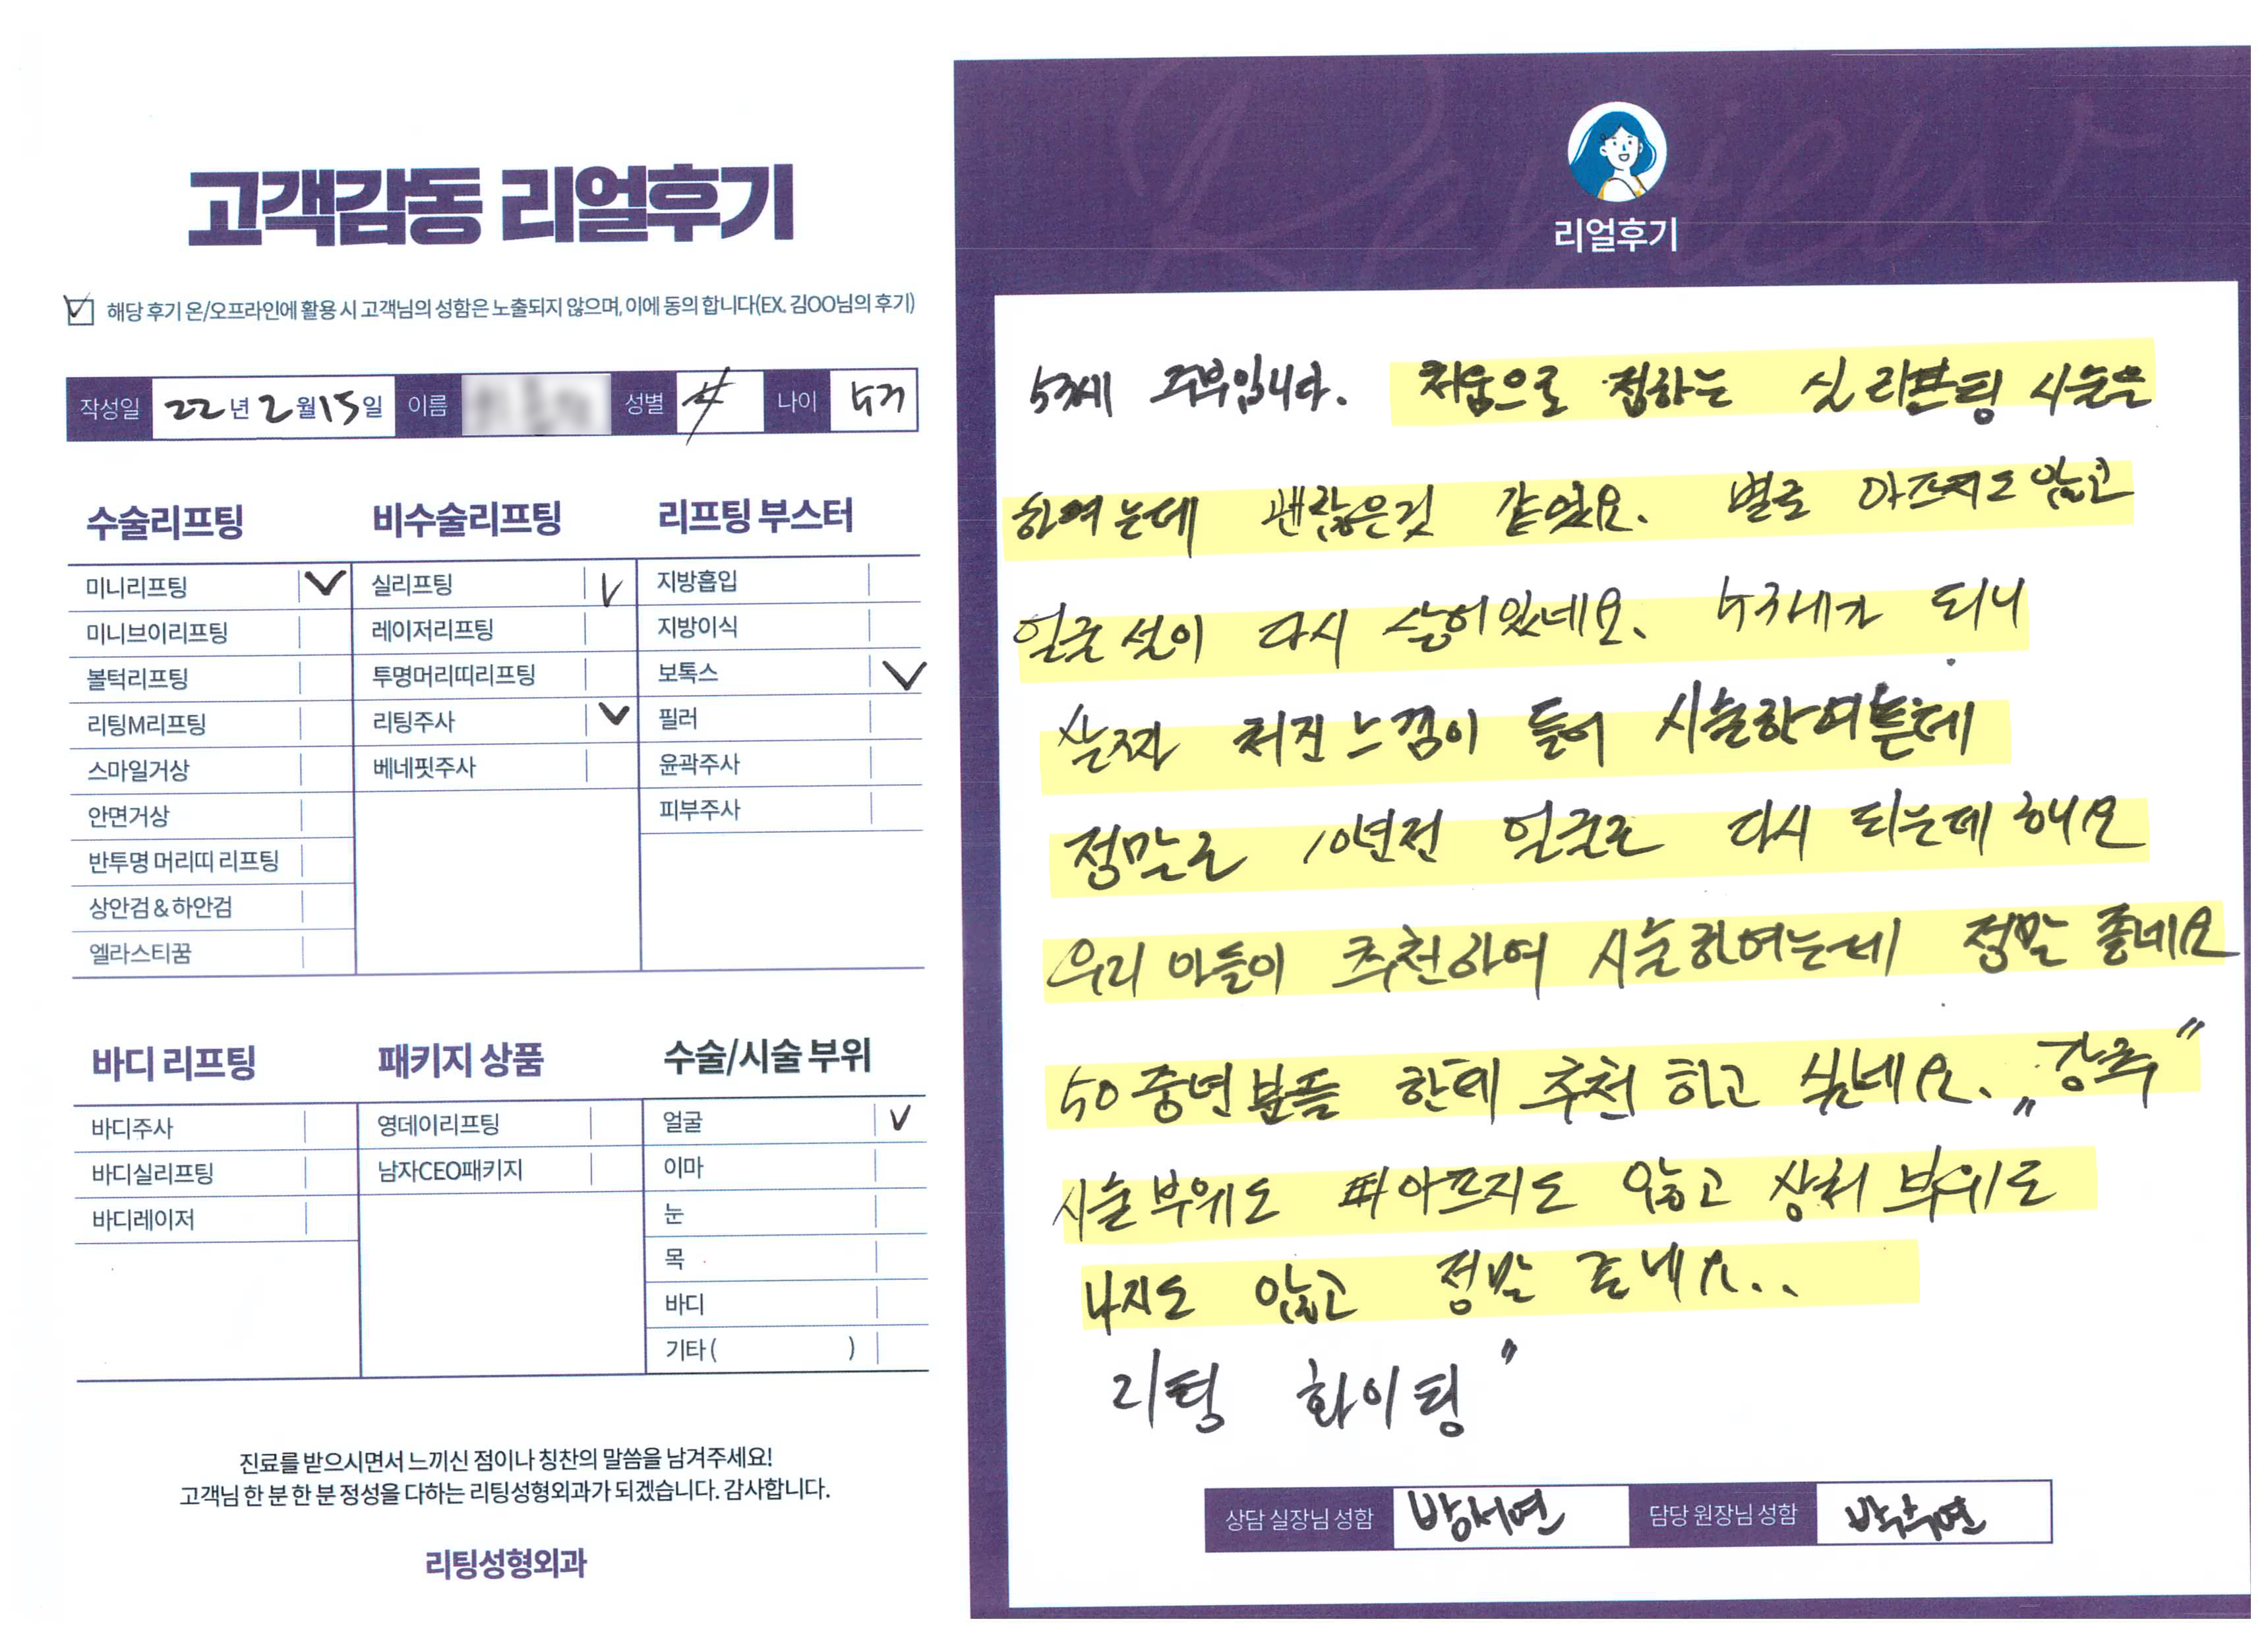 고객감동 리얼후기
해당 후기 온/오프라인에 활용 시 고객님의 성함은 노출되지 않으며, 이에 동의 합니다(EX. 김OO님의 후기)
작성일 22년 2월 15일 이름 성별 나이
수술리프팅
미니리프팅
미니브이리프팅
볼턱리프팅
리팅M리프팅
스마일거상
안면거상
반투명 머리띠 리프팅
상안검 & 하안검
엘라스티꿈
비수술리프팅
실리프팅
레이저리프팅
투명머리띠리프팅
리팅주사
베네핏주사
리프팅 부스터
지방흡입
지방이식
보톡스
필러
윤곽주사
피부주사
바디 리프팅
바디주사
바디실리프팅
바디레이저
패키지 상품
영데이리프팅
남자CEO패키지
수술/시술 부위
얼굴
이마
눈
목
바디
기타( )
진료를 받으시면서 느끼신 점이나 칭찬의 말씀을 남겨주세요!
고객님 한 분 한 분 정성을 다하는 리팅성형외과가 되겠습니다. 감사합니다.
리팅성형외과
Review
리얼후기
53세 주부입니다. 처음으로 접하는 실 리프팅 시술을
하여는데 괜찮은것 같았요. 별로 아프지도 않고
얼굴 선이 다시 살어있네요. 53세가 되니
살짝 처진느낌이 들어 시술하여는데
정말로 10년전 얼굴로 다시 되는데 해요
우리 아들이 추천하여 시술하여는데 정말 좋네요
50중년분들 한테 추천 하고 싶네요. "강추"
시술부위도 아프지도 않고 상처 부위도
나지도 않고 정말 좋네요..
리팅 화이팅"
상담 실장님 성함 방서연 담당 원장님 성함 박수연